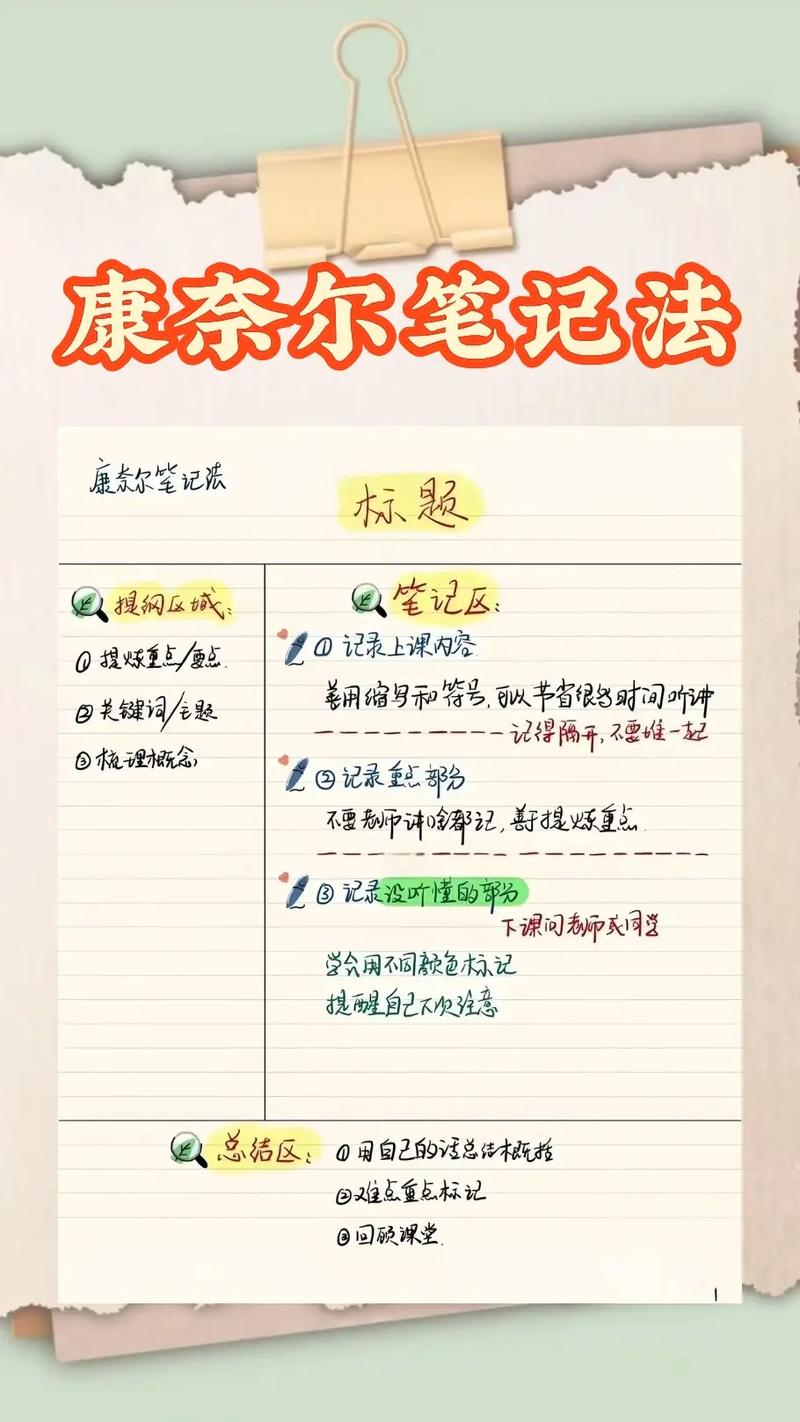 康奈尔笔记法
康奈尔笔记法
标题
提纲区域:
①提炼重点/要点.
②关键词/主题
③梳理概念
笔记区:
①记录上课内容
善用缩写和符号,可以节省很多时间听讲
记得隔开,不要堆一起
②记录重点部分
不要老师讲啥都记,善于提炼重点.
③记录没听懂的部分
下课问老师或同学
学会用不同颜色标记
提醒自己下次注意
总结区:
①用自己的话总结概括
②难点重点标记
③回顾课堂.
1